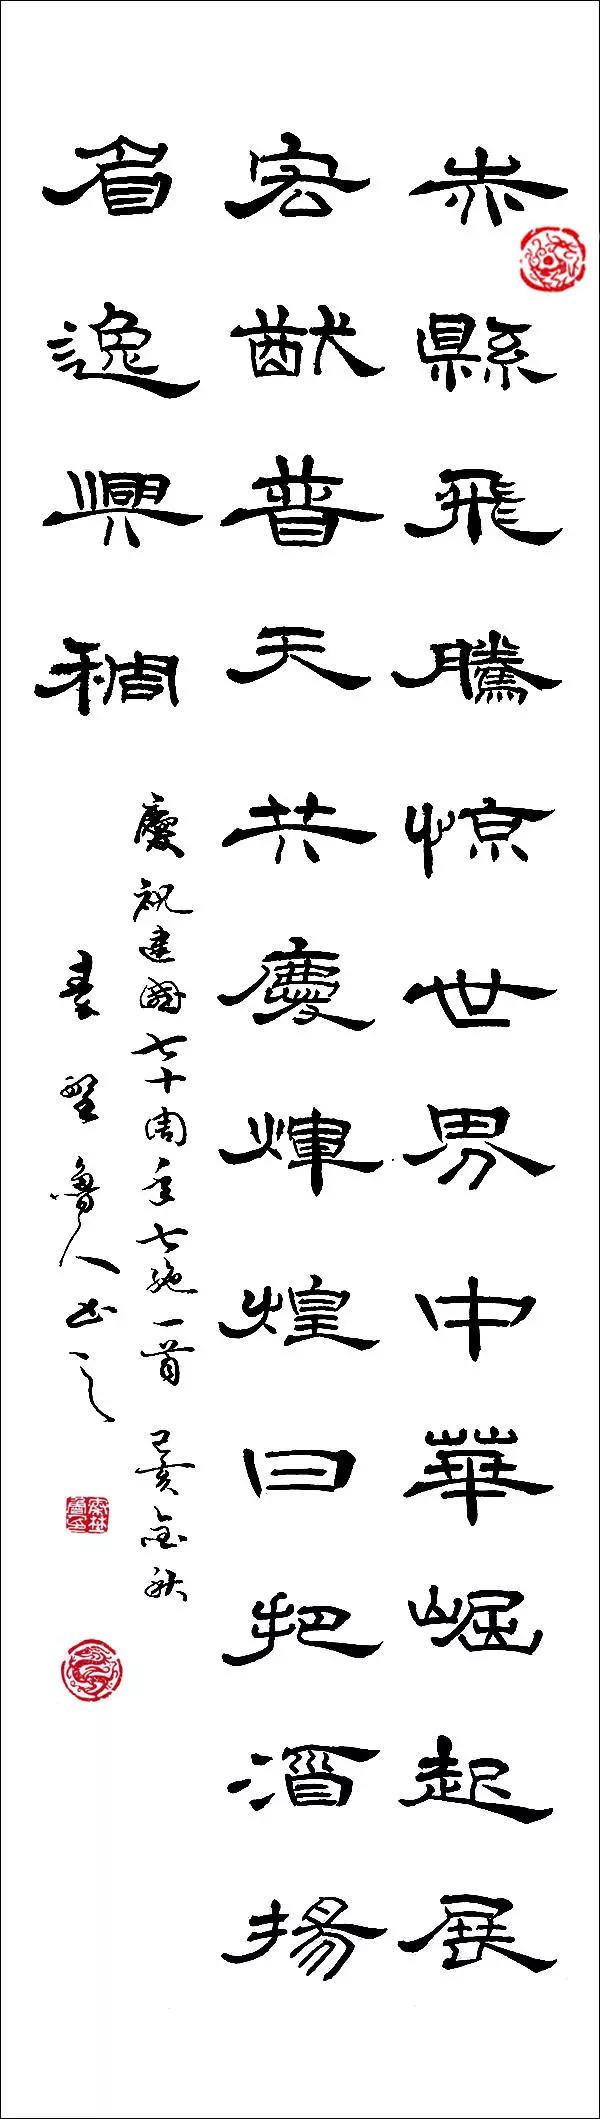 赤縣飛騰惊世界中華崛起展
宏猷普天共慶煇煌日把酒揚
眉逸興稠
慶祝建國七十周年七絶一首 己亥金秋
魯人书之